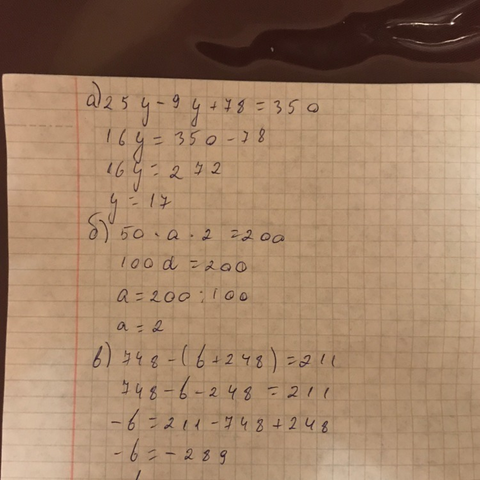 а) 25y - 9y + 78 = 350
16y = 350 - 78
16y = 272
y = 17
б) 50 · a · 2 = 200
100a = 200
a = 200 : 100
a = 2
в) 748 - (b + 248) = 211
748 - b - 248 = 211
-b = 211 - 748 + 248
-b = -289